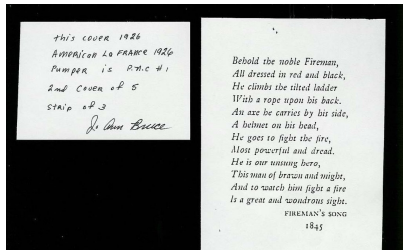 this cover 1926
AMERICAN LA FRANCE 1926
Pumper is P.N.C #1
2nd cover of 5
strip of 3
Jo Ann Bruce
Behold the noble Fireman,
All dressed in red and black,
He climbs the tilted ladder
With a rope upon his back.
An axe he carries by his side,
A helmet on his head,
He goes to fight the fire,
Most powerful and dread.
He is our unsung hero,
This man of brawn and might,
And to watch him fight a fire
Is a great and wondrous sight.
FIREMAN'S SONG
1845